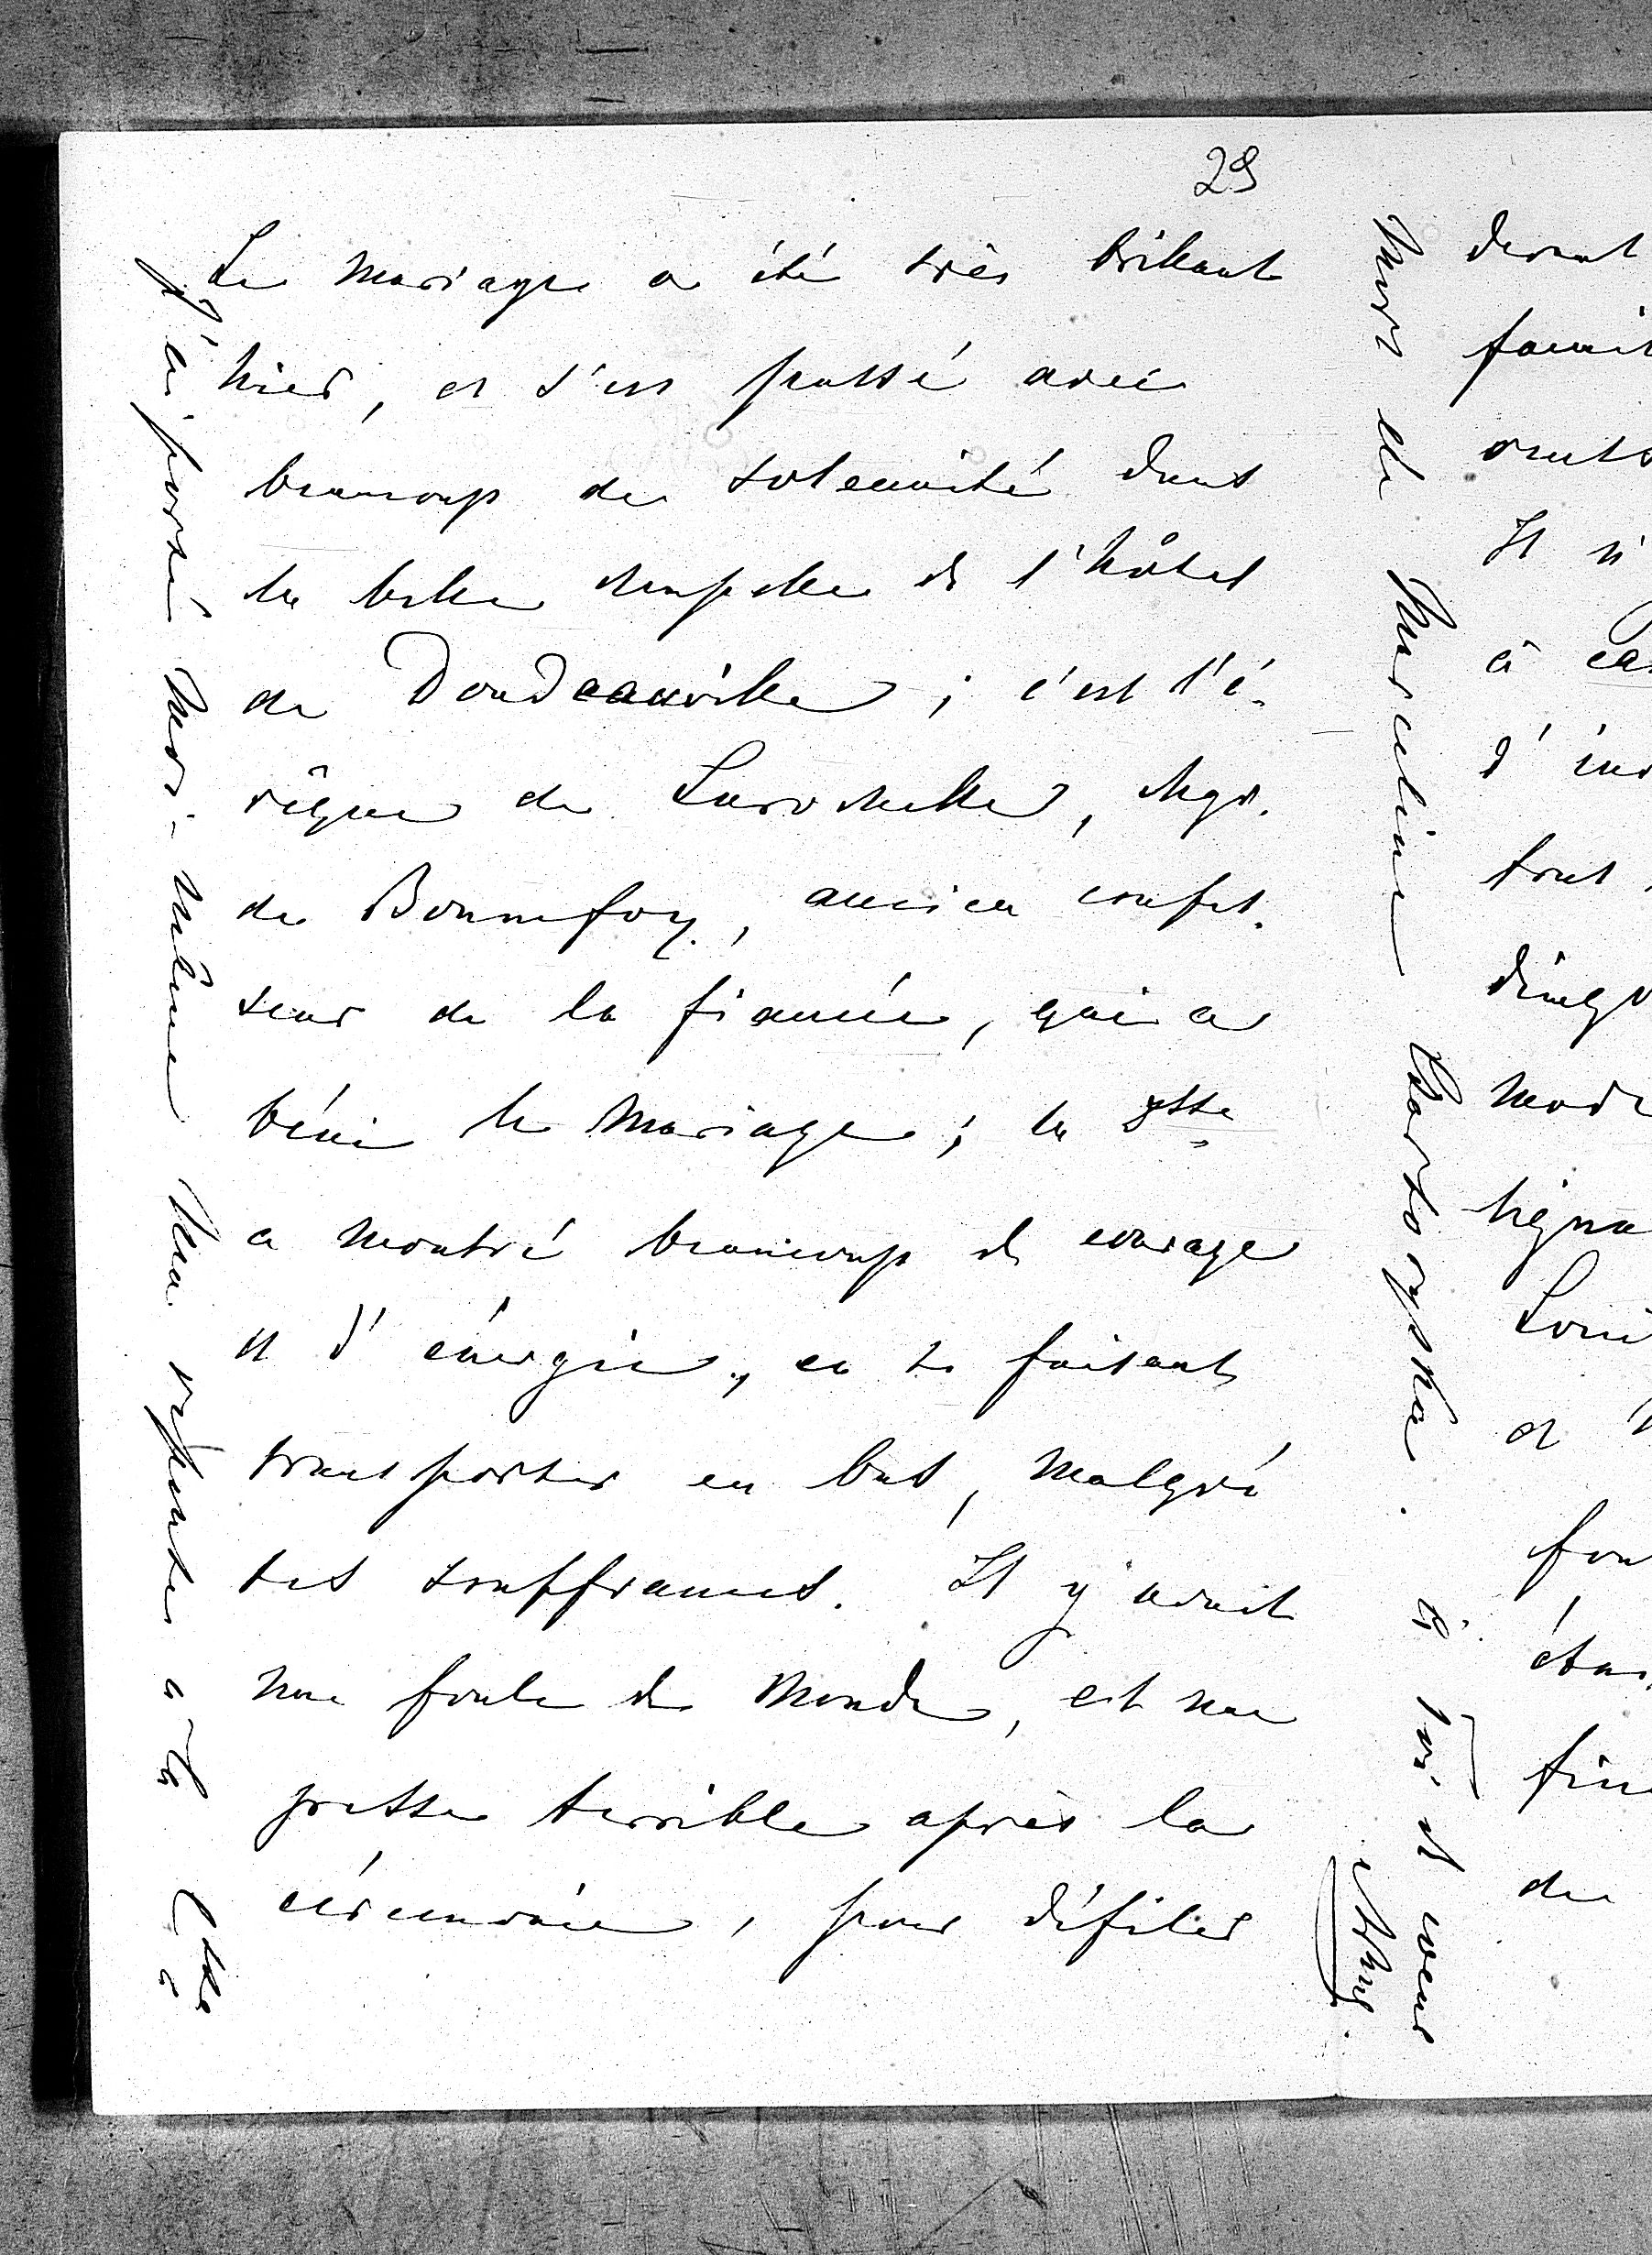 29
Le mariage a été très brillant
hier, et s'est passé avec
beaucoup de solennité dans
la belle chapelle de l'hôtel
de Doudeauville ; c'est l'é-
vêque de Larochelle, Mgr.
de Bonnefoy, ancien confes-
seur de la fiancée, qui a
béni le mariage ; la Vsse
a montré beaucoup de courage
et d'énergie, en se faisant
transporter en bas, malgré
ses souffrances. Il y avait
une foule de monde, et une
presse terrible après la
cérémonie, pour défiler
J'ai porté moi-même ma réponse à la Ctesse
Marceline Czartoryska. à toi de cœur
devant
Il n'
à
d'
tout
et
de